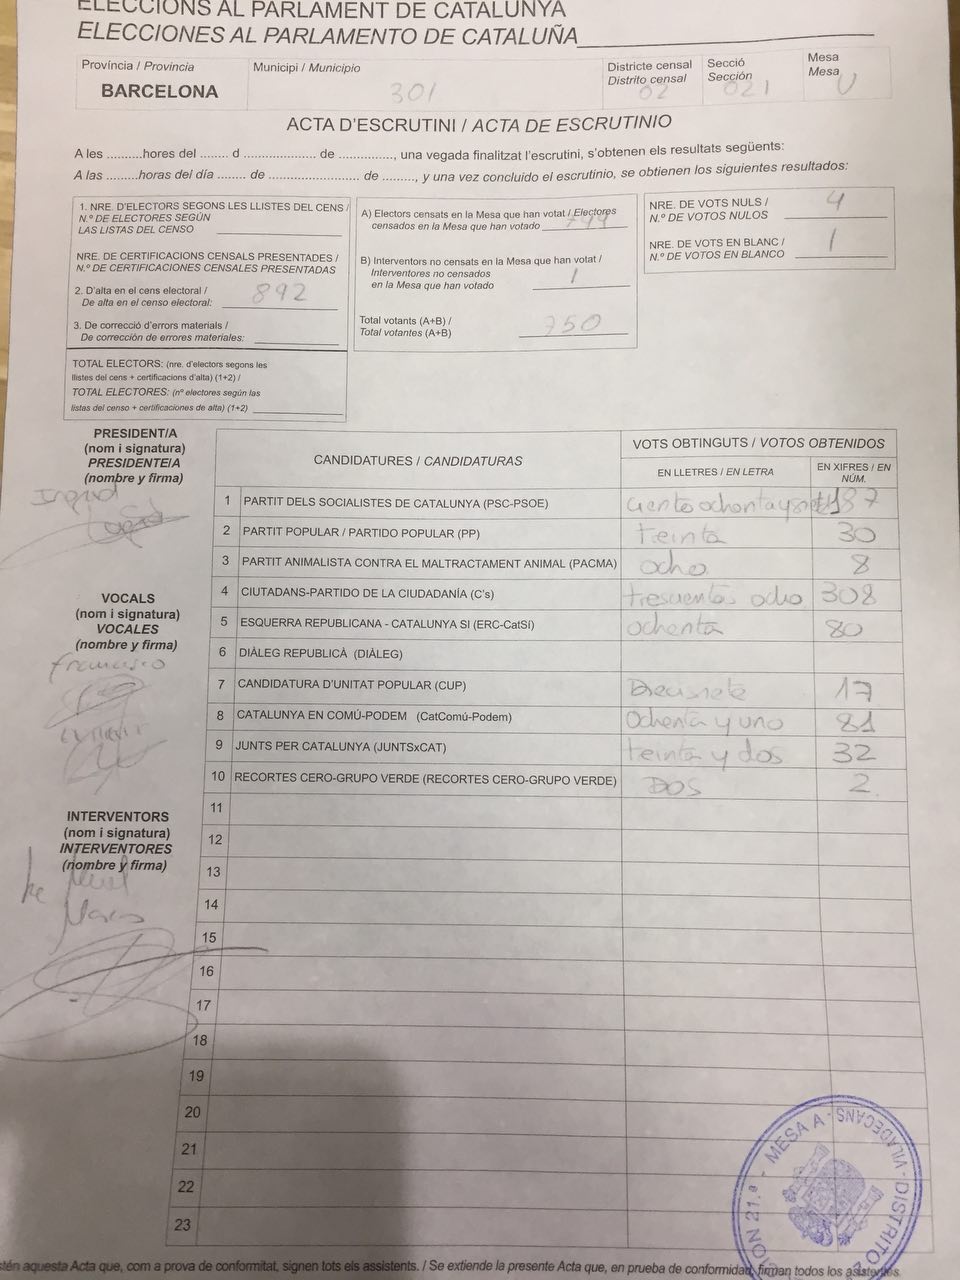 ELECCIONS AL PARLAMENT DE CATALUNYA
ELECCIONES AL PARLAMENTO DE CATALUÑA
Província / Provincia
BARCELONA
Municipi / Municipio
301
Districte censal
Distrito censal
02
Secció
Sección
021
Mesa
Mesa
U
ACTA D'ESCRUTINI / ACTA DE ESCRUTINIO
A les ..........hores del ........ d .................... de ..............., una vegada finalitzat l'escrutini, s'obtenen els resultats següents:
A las .........horas del día ........ de ......................... de ........., y una vez concluido el escrutinio, se obtienen los siguientes resultados:
1. NRE. D'ELECTORS SEGONS LES LLISTES DEL CENS /
N.º DE ELECTORES SEGÚN
LAS LISTAS DEL CENSO
NRE. DE CERTIFICACIONS CENSALS PRESENTADES /
N.º DE CERTIFICACIONES CENSALES PRESENTADAS
2. D'alta en el cens electoral /
De alta en el censo electoral: 892
3. De correcció d'errors materials /
De corrección de errores materiales:
TOTAL ELECTORS: (nre. d'electors segons les
llistes del cens + certificacions d'alta) (1+2) /
TOTAL ELECTORES: (nº electores según las
listas del censo + certificaciones de alta) (1+2)
A) Electors censats en la Mesa que han votat / Electores
censados en la Mesa que han votado 749
B) Interventors no censats en la Mesa que han votat /
Interventores no censados
en la Mesa que han votado 1
Total votants (A+B) /
Total votantes (A+B) 750
NRE. DE VOTS NULS /
N.º DE VOTOS NULOS 4
NRE. DE VOTS EN BLANC /
N.º DE VOTOS EN BLANCO 1
PRESIDENT/A
(nom i signatura)
PRESIDENTE/A
(nombre y firma)
Ingrid
VOCALS
(nom i signatura)
VOCALES
(nombre y firma)
Francisco
INTERVENTORS
(nom i signatura)
INTERVENTORES
(nombre y firma)
CANDIDATURES / CANDIDATURAS
VOTS OBTINGUTS / VOTOS OBTENIDOS
EN LLETRES / EN LETRA
EN XIFRES / EN NÚM.
1 PARTIT DELS SOCIALISTES DE CATALUNYA (PSC-PSOE) ciento ochenta y siete 187
2 PARTIT POPULAR / PARTIDO POPULAR (PP) treinta 30
3 PARTIT ANIMALISTA CONTRA EL MALTRACTAMENT ANIMAL (PACMA) ocho 8
4 CIUTADANS-PARTIDO DE LA CIUDADANÍA (C's) trescientos ocho 308
5 ESQUERRA REPUBLICANA - CATALUNYA SI (ERC-CatSí) ochenta 80
6 DIÀLEG REPUBLICÀ (DIÀLEG)
7 CANDIDATURA D'UNITAT POPULAR (CUP) Diecisiete 17
8 CATALUNYA EN COMÚ-PODEM (CatComú-Podem) Ochenta y uno 81
9 JUNTS PER CATALUNYA (JUNTSxCAT) treinta y dos 32
10 RECORTES CERO-GRUPO VERDE (RECORTES CERO-GRUPO VERDE) DOS 2
11
12
13
14
15
16
17
18
19
20
21
22
23
MESA A - VILADECANS - DISTRITO
21.ª
aquesta Acta que, com a prova de conformitat, signen tots els assistents. / Se extiende la presente Acta que, en prueba de conformidad, firman todos los asistentes.